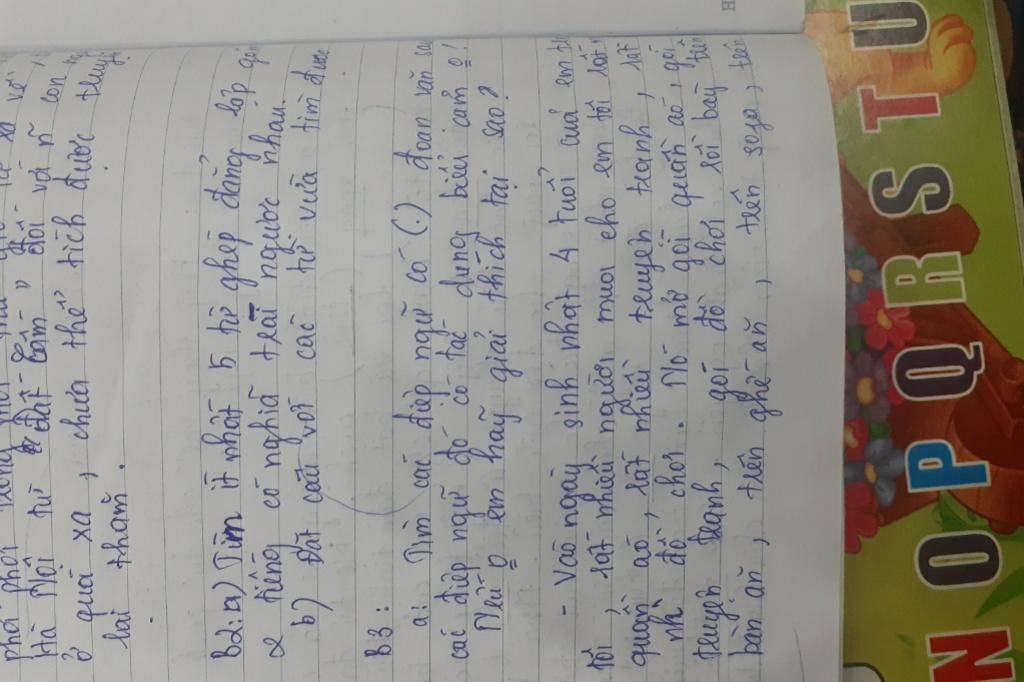 Hà Nội từ đất Cấm " đối với ñ con
ở quá xa, chưa thể tích được
lại thăm.
B2: a) Tìm ít nhất 5 từ ghép đẳng lập
2 tiếng có nghĩa trái ngược nhau.
b) Đặt câu với các từ vừa tìm được
B3:
a: Tìm các điệp ngữ có (.) đoạn văn sau
các điệp ngữ đó có tác dụng biểu cảm o!
Nếu o em hãy giải thích tại sao?
- Vào ngày sinh nhật 4 tuổi của em
tôi, rất nhiều người mua cho em tôi rất
quần áo, rất nhiều truyện tranh, rất
nh đồ chơi. Nó mở gói quần áo, gói
truyện tranh, gói đồ chơi rồi bày trên
bàn ăn, trên ghế ăn, trên sofa, trên
H
N O P Q R S T U